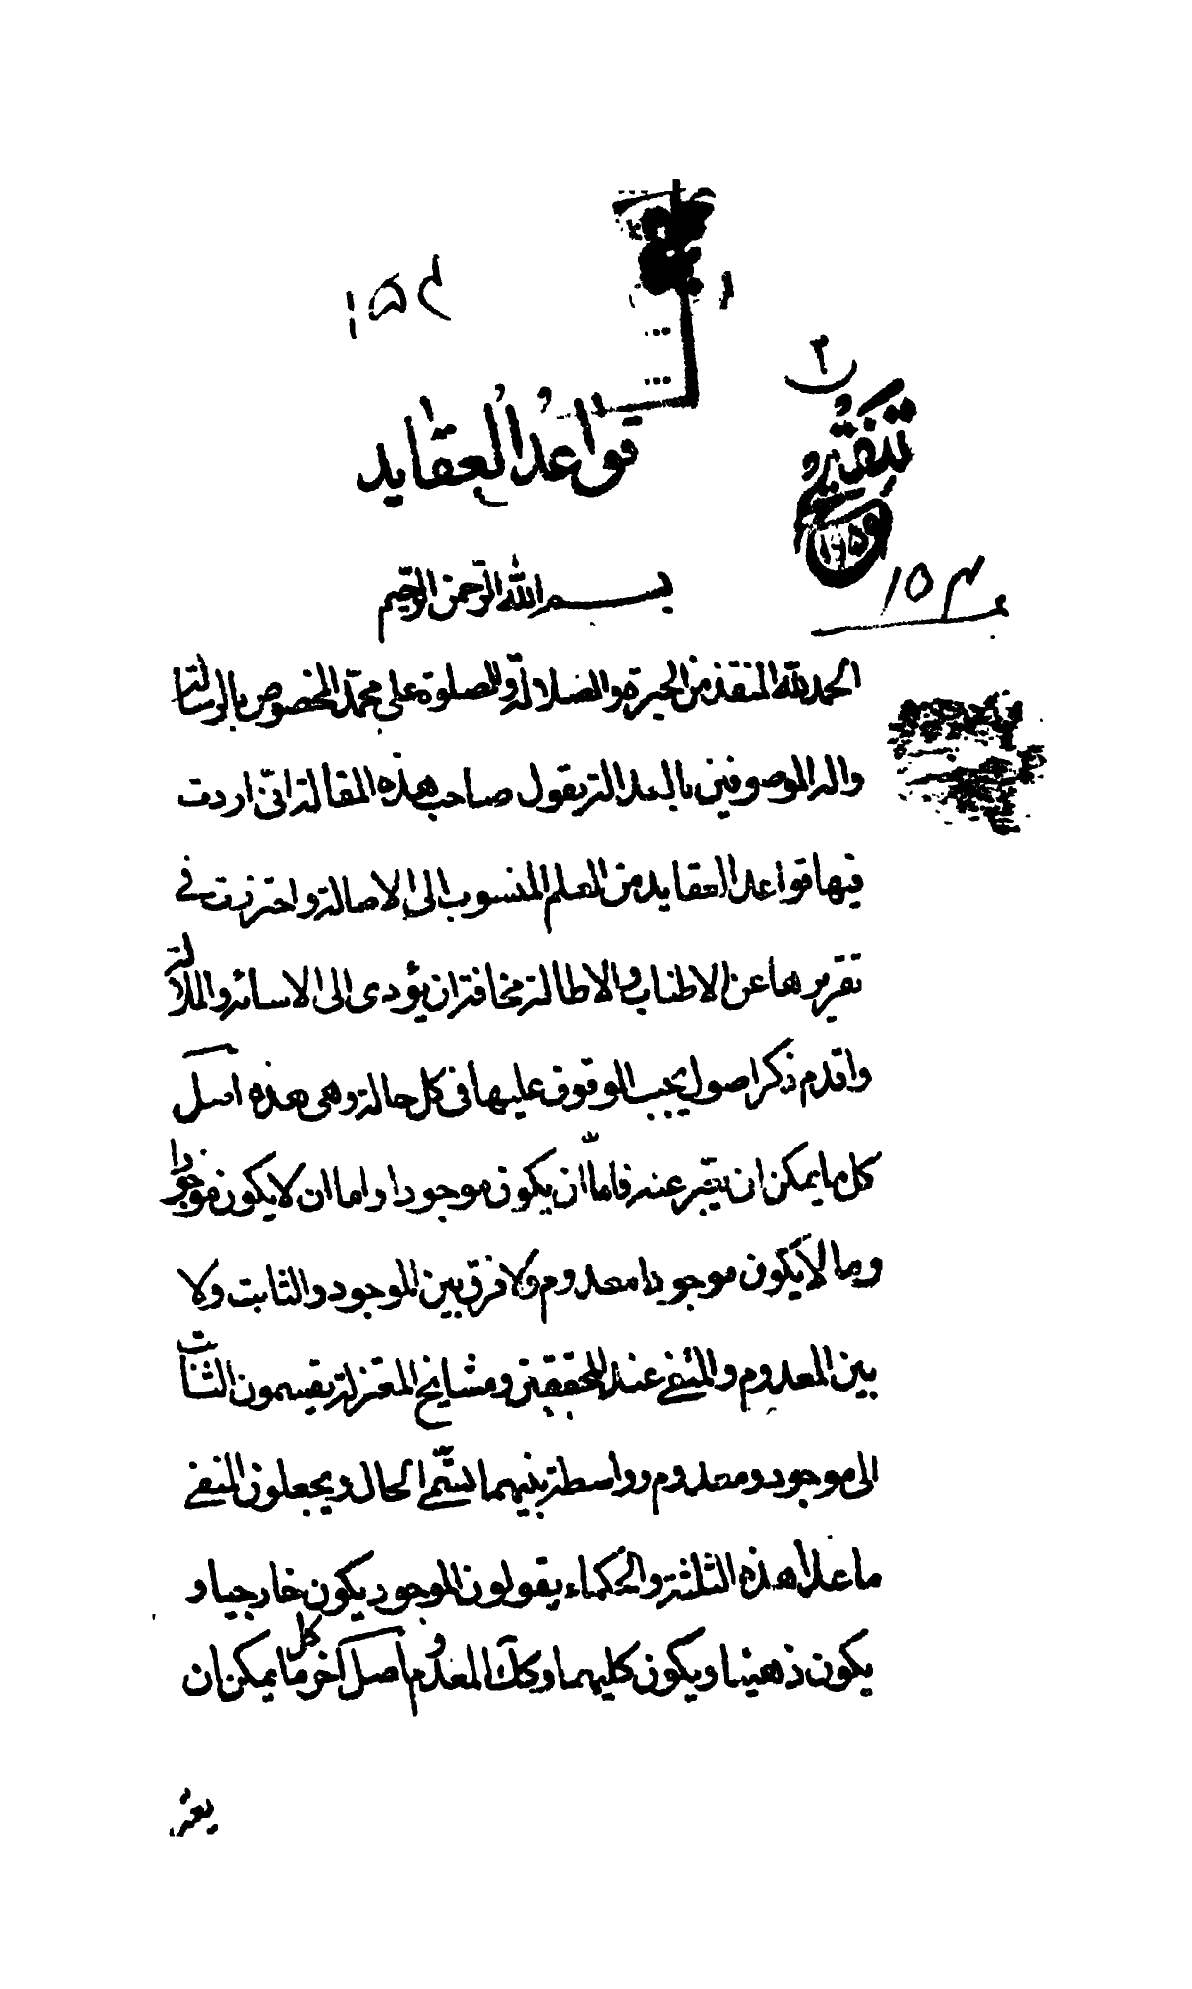 ١٥٤
٣
قواعد العقايد
تنقيح
١٥٤
بسم الله الرحمن الرحيم
الحمد لله المنقذ من الحيرة والضلالة والصلوة على محمد المخصوص بالرسالة
واله الموصوفين بالعدالة يقول صاحب هذه المقالة انى اردت
فيها قواعد العقايد من العلم المنسوب الى الاصالة واحترزت فى
تقريرها عن الاطناب والاطالة مخافة ان يؤدى الى الاسائه والملالة
واقدم ذكر اصول يجب الوقوف عليها فى كل حالة وهى هذه اصل
كل ما يمكن ان يعبر عنه فاما ان يكون موجودا واما ان لا يكون موجودا
وما لا يكون موجودا معدوم ولا فرق بين الموجود والثابت ولا
بين المعدوم والمنفى عند المحققين ومشايخ المعتزلة يقسمون الثابت
الى موجود ومعدوم وواسطة بينهما تسمى الحال ويجعلون المنفى
ما عدا هذه الثلثة والحكماء يقولون الموجود يكون خارجيا و
يكون ذهنيا ويكون كليهما وكك المعدوم اصل آخر كل ما يمكن ان
يعبر